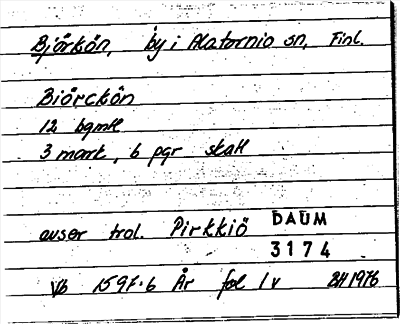 Björkön, by i Alatornio sn, Finl.
Biörckön
12 bgmll
3 mark, 6 pgr skatt
avser trol. Pirkkiö DAUM
3174
Vb 1597:6 År fol 1v BH 1976